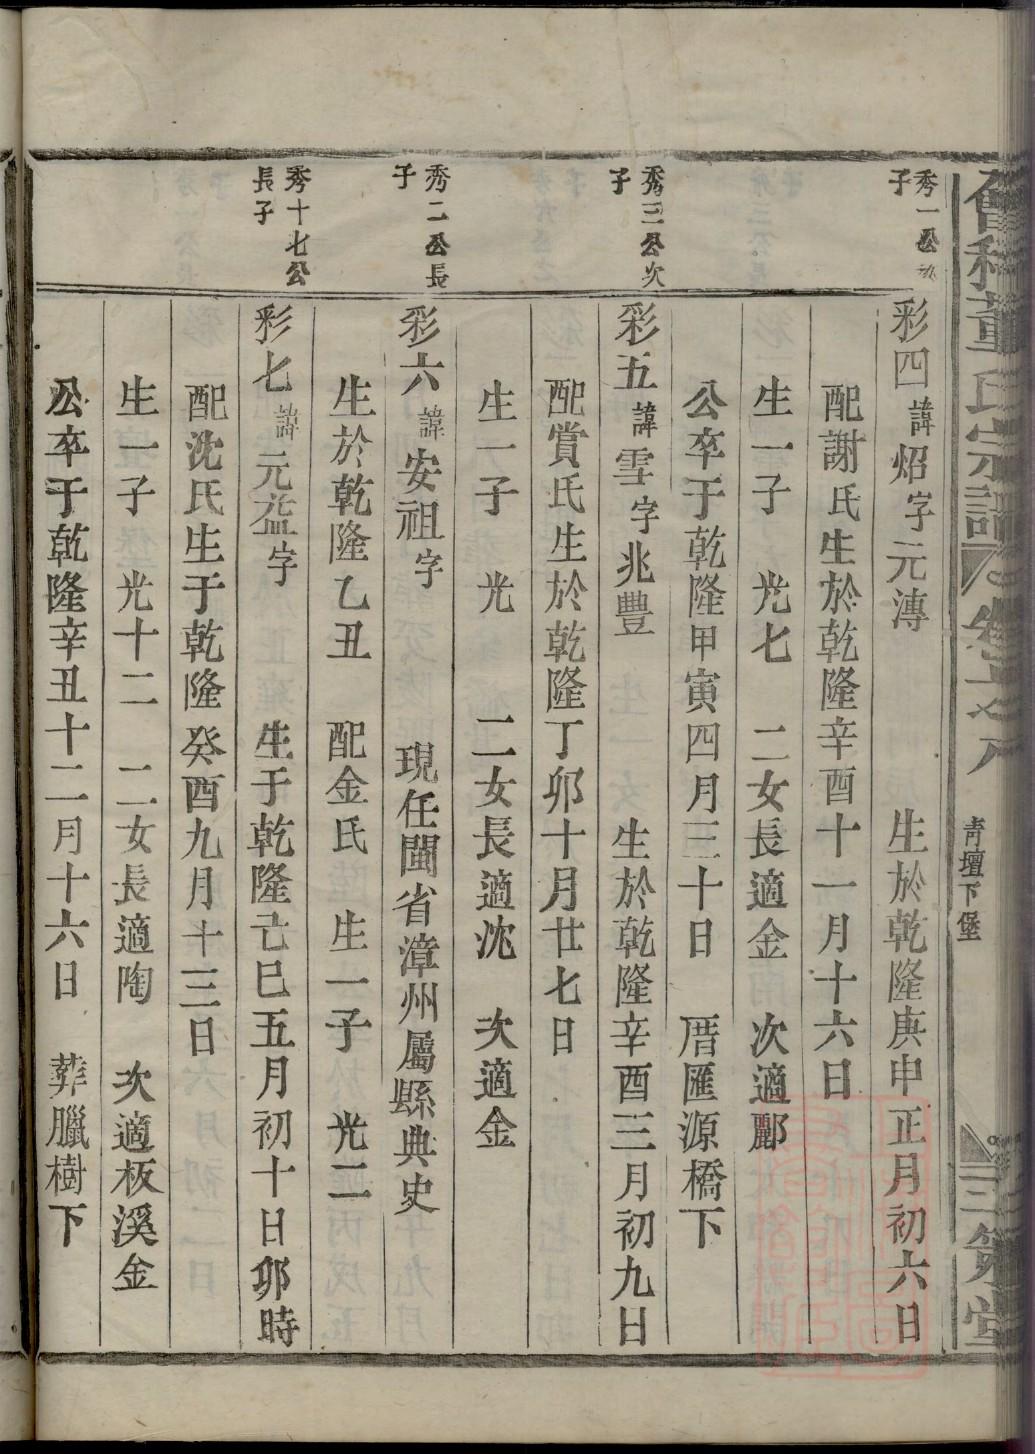 會稽董氏宗譜 卷 青壇下堡 三策堂
秀一公次子
彩四 諱炤字元溥 生於乾隆庚申正月初六日
配謝氏生於乾隆辛酉十一月十六日
生一子 光七 二女長適金 次適酈
公卒于乾隆甲寅四月三十日 厝匯源橋下
秀三公次子
彩五 諱雪字兆豐 生於乾隆辛酉三月初九日
配賞氏生於乾隆丁卯十月廿七日
生一子 光 二女長適沈 次適金
秀二公長子
彩六 諱安祖字 現任閩省漳州屬縣典史
生於乾隆乙丑 配金氏 生一子 光二
秀十七公長子
彩七 諱元益字 生于乾隆己巳五月初十日卯時
配沈氏生于乾隆癸酉九月十三日
生一子 光十二 二女長適陶 次適板溪金
公卒于乾隆辛丑十二月十六日 葬臘樹下